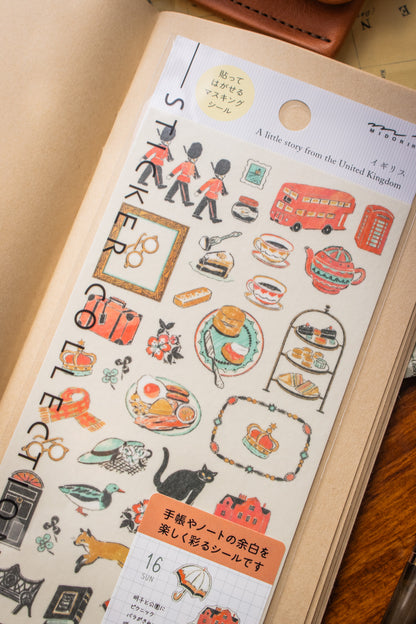 貼って
はがせる
マスキング
シール
MIDORI
A little story from the United Kingdom
イギリス
STICKER COLLECTION
手帳やノートの余白を
楽しく彩るシールです
16
SUN
明子と公園に
ピクニック